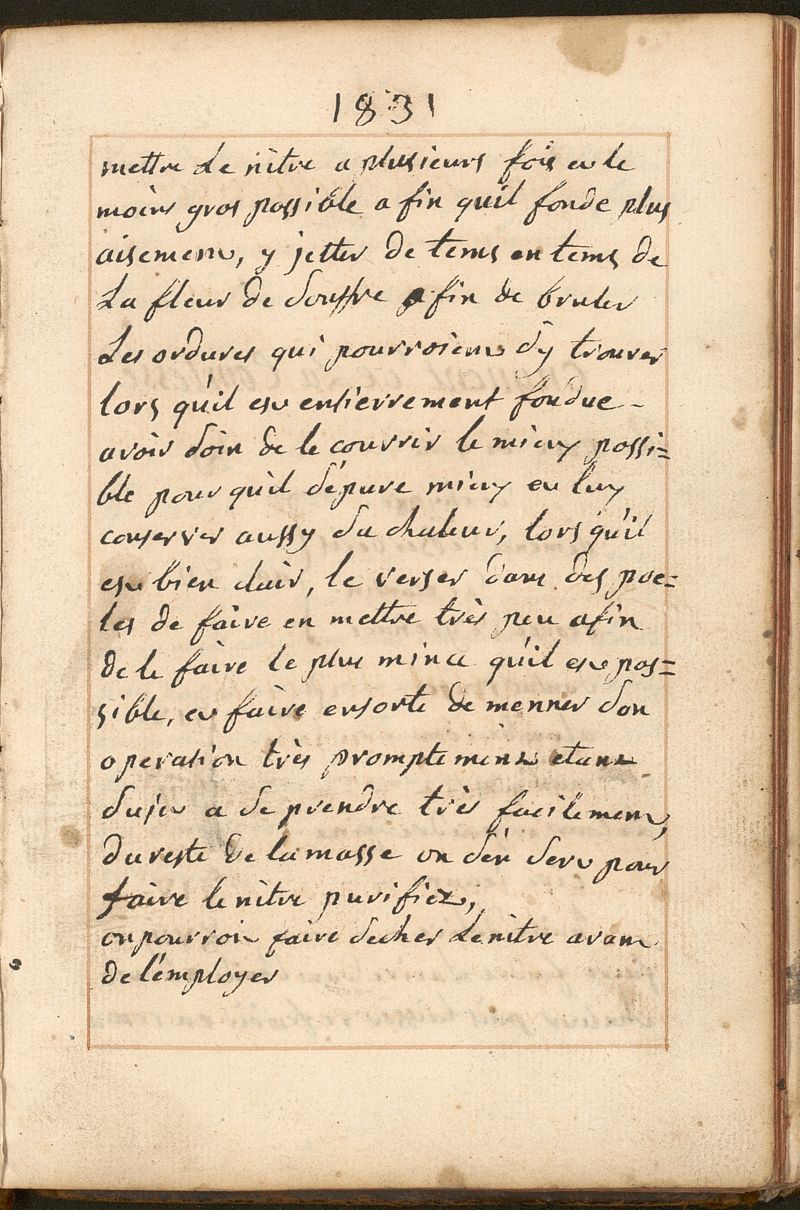 1831
mettre Le nitre a plusieurs fois et le
moins gros possible a fin quil fonde plus
aisement, y jetter de tems en tems de
La fleur de souffre afin de bruler
Les ordures qui pourroient s'y trouver
lors qu'il est entierrement fondue -
avoir soin de le couvrir le mieux possi=
ble pour quil s'épure mieux et luy
conserver aussy sa chaleur, lors qu'il
est bien clair, le verser dans des poe=
les de faire en mettre très peu afin
de le faire le plus mince qu'il est pos=
sible, et faire ensorte de menner son
operation très promptement etant
sujet a se prendre très facilement,
du reste de la masse on s'en sert pour
faire le nitre purifiez,
on pourroit faire secher Le nitre avant
de l'employer